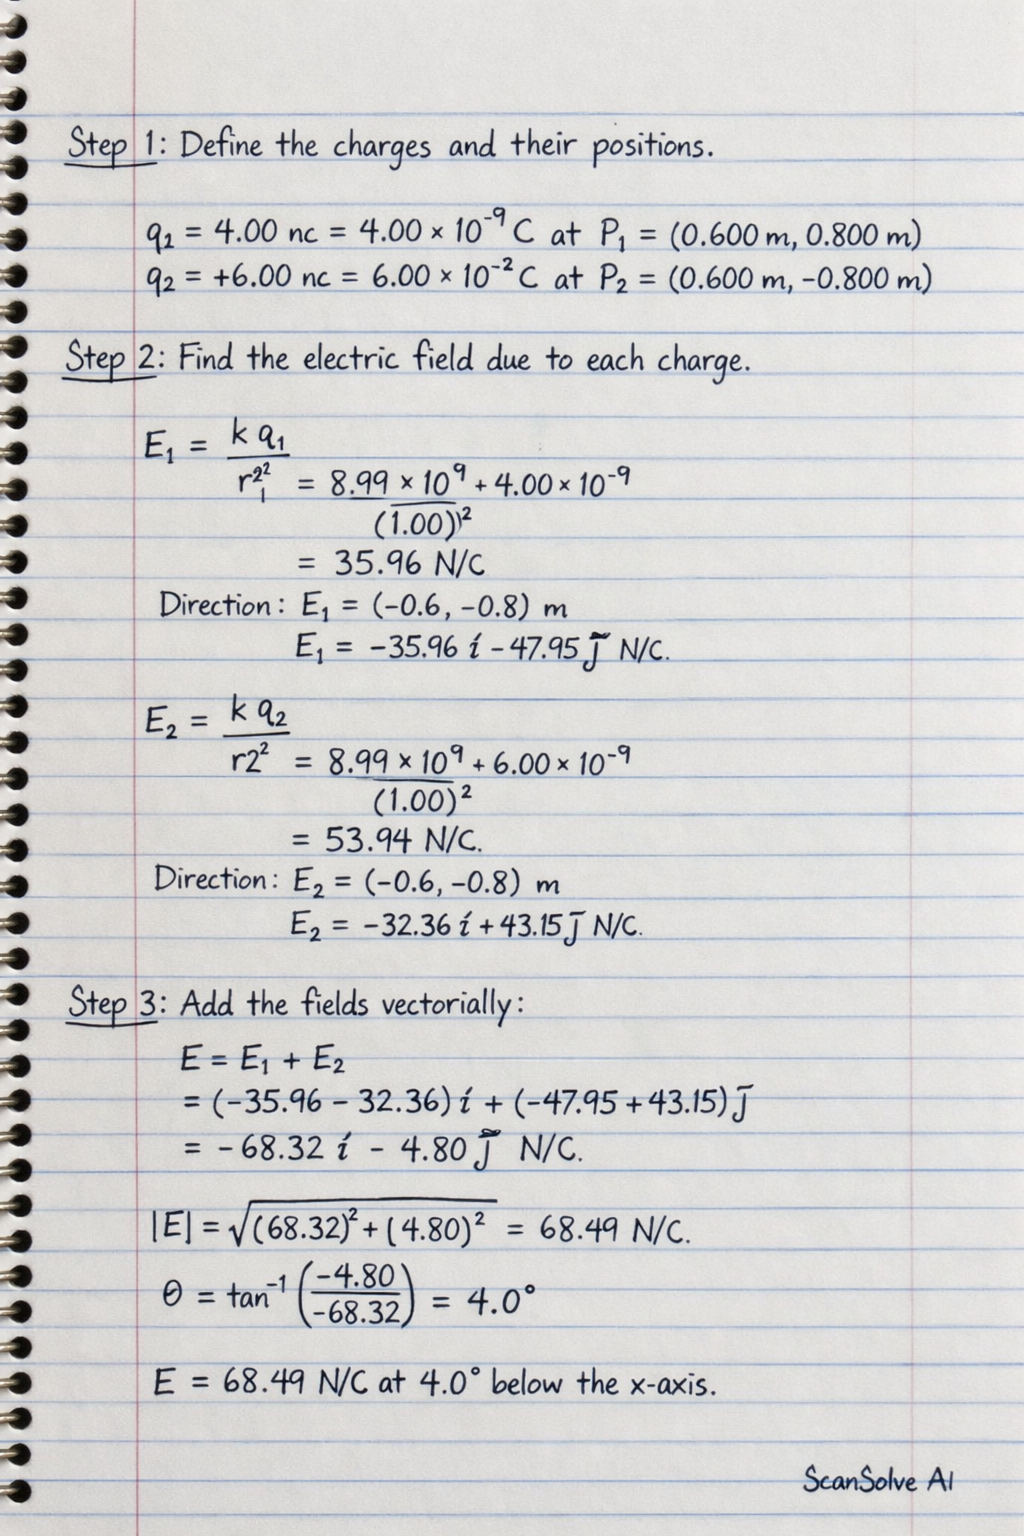 Step 1: Define the charges and their positions.
q₂ = 4.00 nc = 4.00 × 10⁻⁹ C at P₁ = (0.600 m, 0.800 m)
q₂ = +6.00 nc = 6.00 × 10⁻² C at P₂ = (0.600 m, -0.800 m)
Step 2: Find the electric field due to each charge.
E₁ = k q₁
r₁²² = 8.99 × 10⁹ + 4.00 × 10⁻⁹
(1.00))²
= 35.96 N/C
Direction: E₁ = (-0.6, -0.8) m
E₁ = -35.96 í - 47.95 j̃ N/C.
E₂ = k q₂
r2² = 8.99 × 10⁹ + 6.00 × 10⁻⁹
(1.00)²
= 53.94 N/C.
Direction: E₂ = (-0.6, -0.8) m
E₂ = -32.36 í + 43.15 j̄ N/C.
Step 3: Add the fields vectorially:
E = E₁ + E₂
= (-35.96 - 32.36) í + (-47.95 + 43.15) j̄
= -68.32 í - 4.80 j̃ N/C.
|E| = √(68.32)² + (4.80)² = 68.49 N/C.
θ = tan⁻¹ (-4.80 / -68.32) = 4.0°
E = 68.49 N/C at 4.0° below the x-axis.
ScanSolve AI